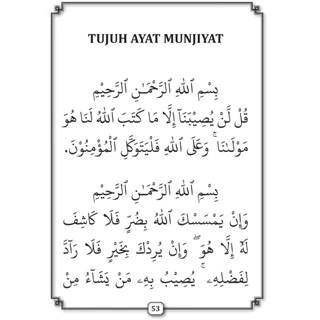 TUJUH AYAT MUNJIYAT
بِسْمِ اللهِ الرَّحْمَـٰنِ الرَّحِيْمِ
قُل لَّنْ يُصِيْبَنَآ إِلَّا مَا كَتَبَ اللهُ لَنَا هُوَ
مَوْلَىٰنَا ۚ وَعَلَى اللهِ فَلْيَتَوَكَّلِ الْمُؤْمِنُوْنَ.
بِسْمِ اللهِ الرَّحْمَـٰنِ الرَّحِيْمِ
وَإِنْ يَمْسَسْكَ اللهُ بِضُرٍّ فَلَا كَاشِفَ
لَهُۥٓ إِلَّا هُوَ ۖ وَإِنْ يُرِدْكَ بِخَيْرٍ فَلَا رَآدَّ
لِفَضْلِهِۦ ۚ يُصِيْبُ بِهِۦ مَنْ يَشَآءُ مِنْ
53